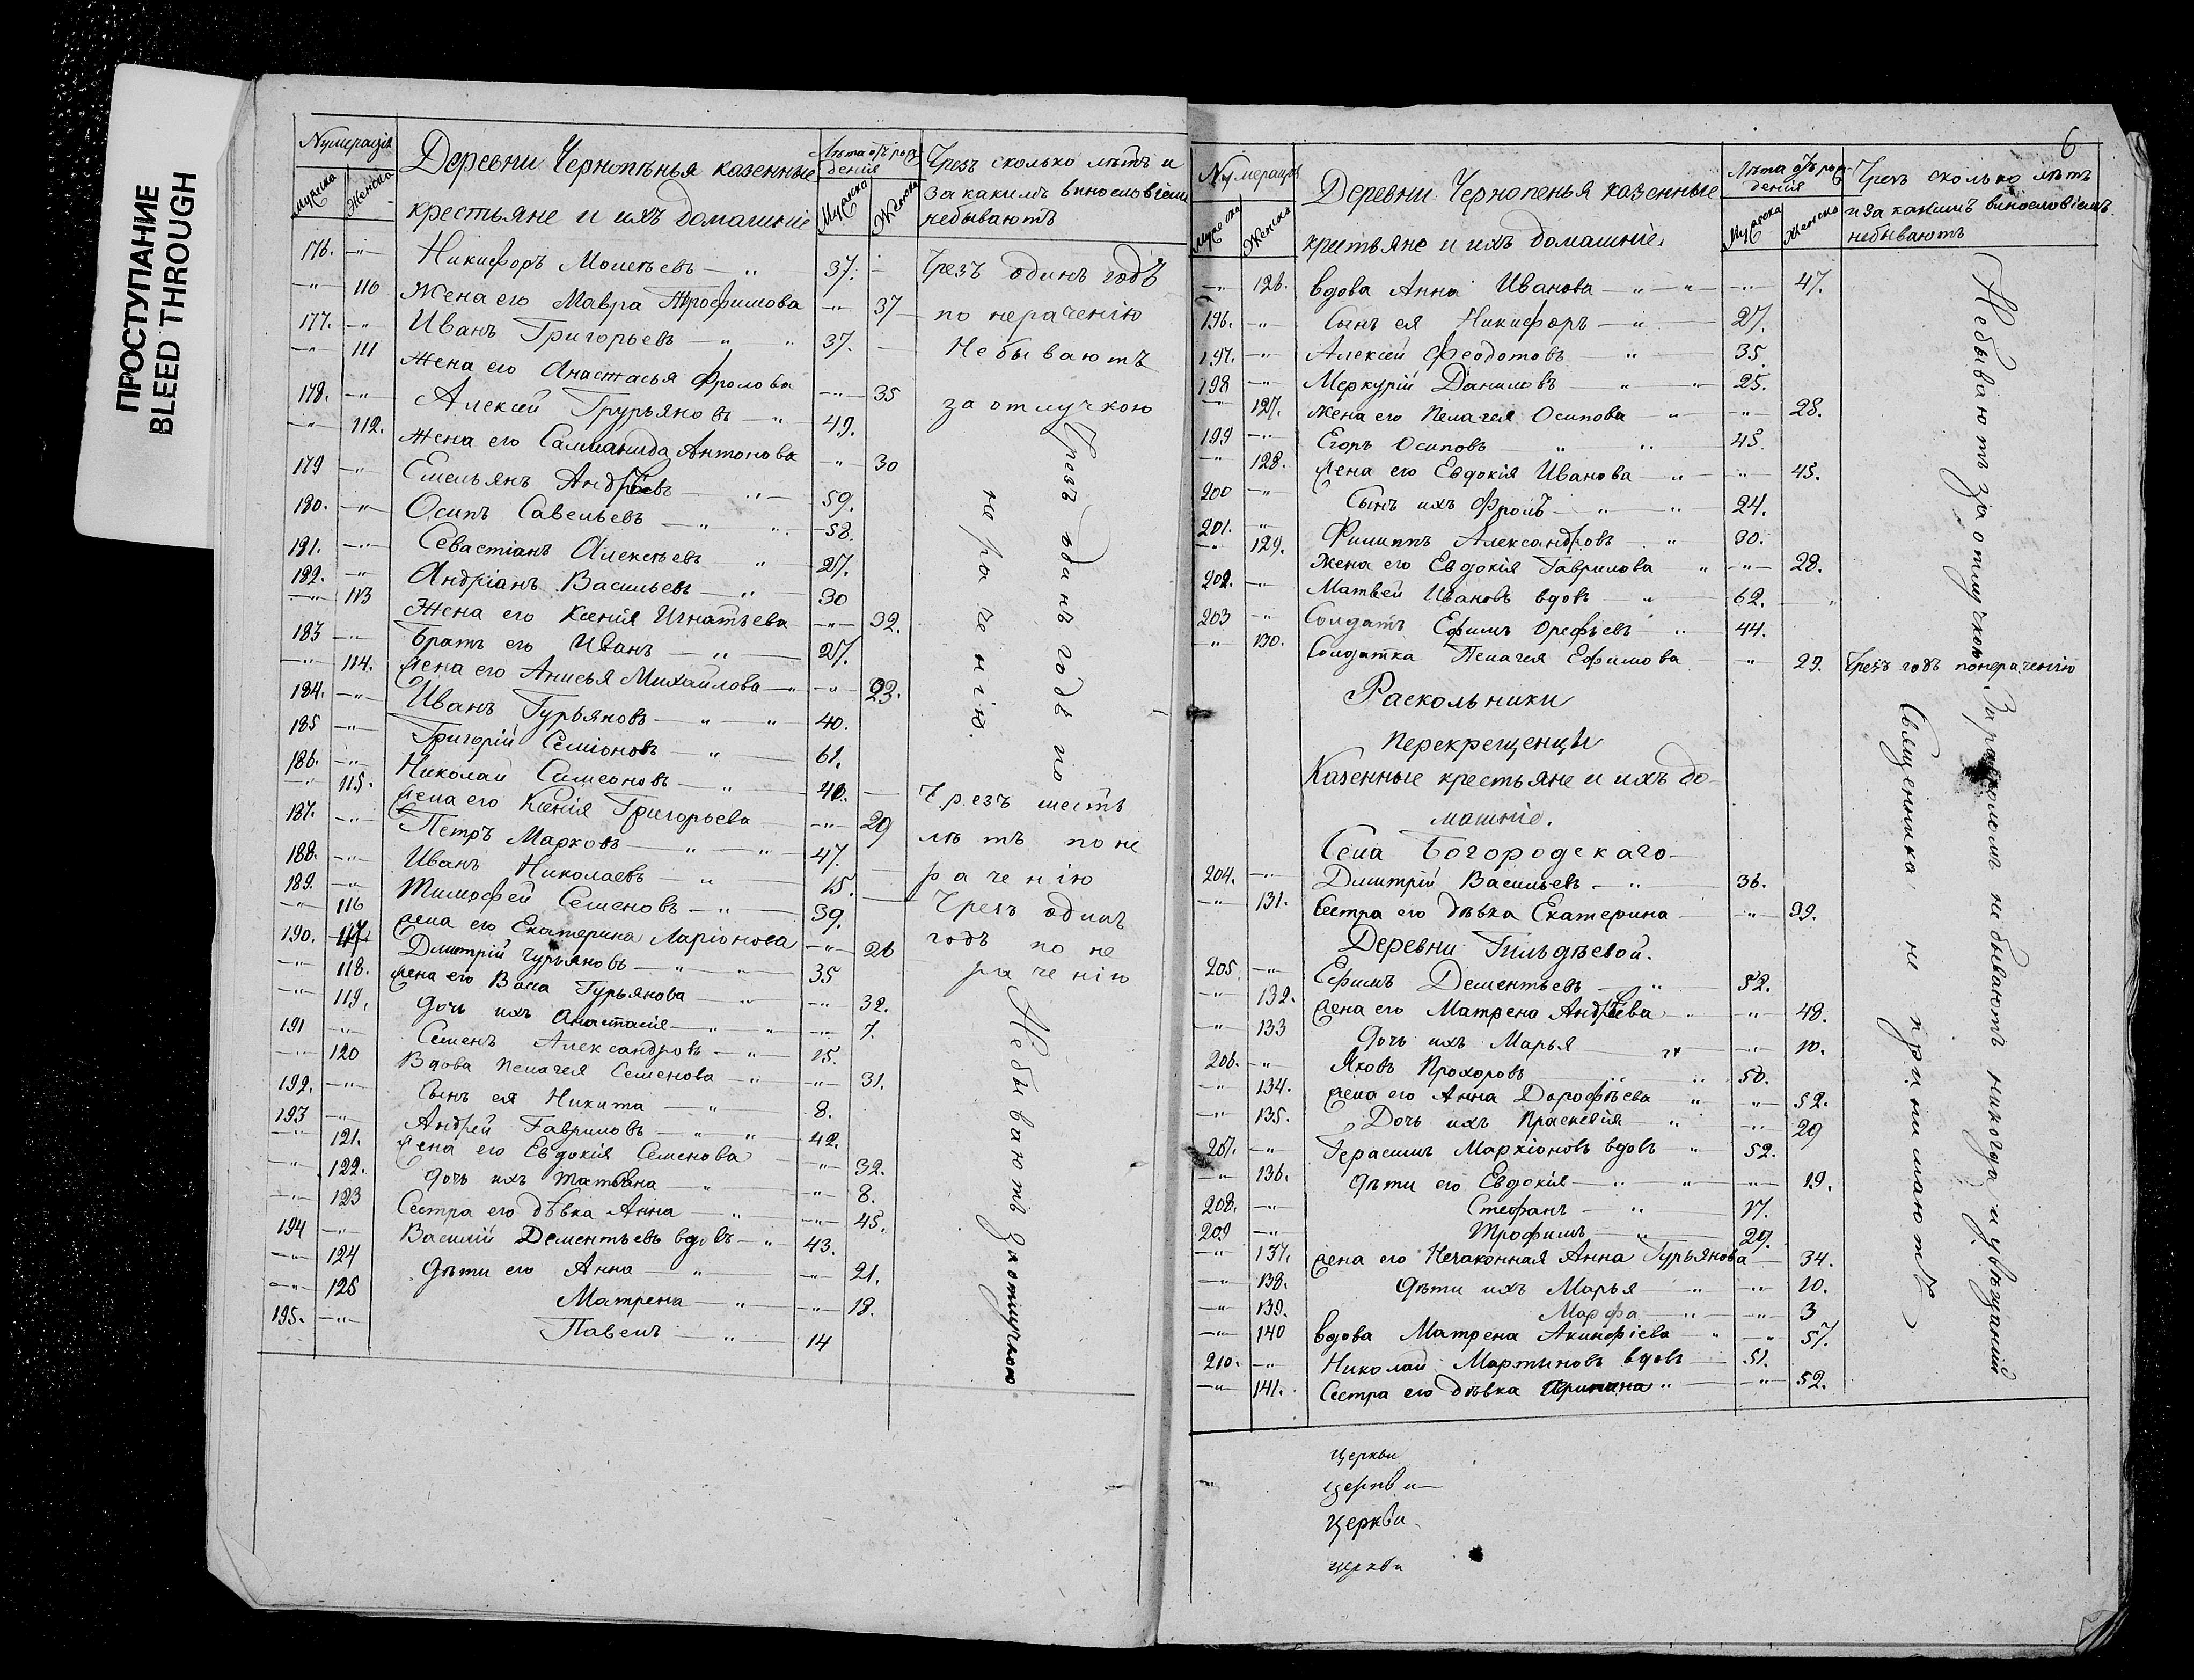 ПРОСТУПАНИЕ
BLEED THROUGH
Нумерація
Мужеска
Женска
Деревни Чернопѣнья казенные
крестьяне и ихъ домашніе
Лѣта отъ рож
денія
Мужеска
Женска
Чрезъ сколько лѣтъ и
за какимъ винословіемъ
небываютъ
176. —"— Никифоръ Моисеевъ —"— 37. Чрезъ одинъ годъ
—"— 110 Жена его Мавра Трофимова —"— 37 по нераченію
177. —"— Иванъ Григорьевъ —"— " 37. — Небываютъ
—"— 111 Жена его Анастасья Фролова —"— 35
178. —"— Алексей Гурьяновъ —"— 49. за отлучкою
—"— 112. Жена его Саломанида Антонова —"— 30
179 —"— Емельянъ Андреевъ —"— 59.
180. —"— Осипъ Савельевъ —"— " 58.
181. —"— Севастіанъ Алексѣевъ —"— 27.
182. —"— Андріанъ Васильевъ —"— 30
—"— 113 Жена его Ксенія Игнатьева —"— 32.
183 —"— Братъ его Иванъ —"— 27.
—"— 114. Жена его Анисья Михайлова —"— 23.
184. —"— Иванъ Гурьяновъ —"— " 40.
185 —"— Григорій Семіоновъ —"— 61.
186. —"— Николай Самсоновъ —"— 40.
Чрезъ одинъ годъ по
нераченію.
—"— 115. Жена его Ксенія Григорьева —"— 29 Чрезъ шесть
187. —"— Петръ Марковъ —"— " 47. лѣтъ поне
188. —"— Иванъ Николаевъ —"— 15. раченію
189. —"— Тимофей Семеновъ —"— 39. Чрезъ одинъ
—"— 116 Жена его Екатерина Ларіонова —"— 26 годъ по не
190. 117. Дмитрій Гурьяновъ —"— " 35 раченію
—"— 118. Жена его Гурьянова —"— 32.
—"— 119. Дочь ихъ Анастасія —"— " 7.
191 —"— Семенъ Александровъ —"— 15.
—"— 120 Вдова Пелагея Семенова —"— 31.
192. —"— Сынъ ея Никита —"— 8.
193 —"— Андрей Гавриловъ —"— " 42.
—"— 121. Жена его Евдокія Семенова —"— 32.
—"— 122. Дочь ихъ Татьяна —"— 8.
—"— 123 Сестра его дѣвка Анна —"— 45.
194 —"— Василій Дементьевъ вдовъ —"— 43.
—"— 124 Дѣти его Анна —"— 21.
—"— 125 Матрена —"— 18.
195. —"— Павелъ —"— 14
Небываютъ за отлучкою
6
Нумерація
Мужеска
Женска
Деревни Чернопенья казенные
критьяне и ихъ домашніе.
Лѣта отъ рож
денія
Мужеска
Женска
Чрезъ сколько лѣтъ
и за какимъ винословіемъ
небываютъ
—"— 126. Вдова Анна Иванова —"— " 47.
196. —"— Сынъ ея Никифоръ —"— 27.
197. —"— Алексей Феодотовъ —"— 35.
198 —"— Меркурій Даниловъ —"— " 25.
—"— 127. Жена его Пелагея Осипова —"— 28.
199 —"— Егоръ Осиповъ " " 45.
—"— 128. Жена его Евдокія Иванова —"— 45.
200 —"— Сынъ ихъ Фролъ —"— " 24.
201. —"— Филиппъ Александровъ " 30.
—"— 129. Жена его Евдокія Гаврилова —"— 28.
202. —"— Матвей Ивановъ вдовъ —"— 62.
203 —"— Солдатъ Ефимъ Орефьевъ " 44.
" 130. Солдатка Пелагея Ефимова " 29. Чрезъ годъ понераченію
Небываютъ за отлучкою
Раскольники
Перекрещенцы
Казенные крестьяне и ихъ до-
машніе.
Села Богородскаго
204. —"— Дмитрій Васильевъ —"— 36.
—"— 131. Сестра его дѣвка Екатерина —"— 39.
Деревни Гильдѣевой.
205. —"— Ефимъ Дементьевъ —"— 52.
—"— 132. Жена его Матрена Андреева —"— 48.
—"— 133 Дочь ихъ Марья —"— 10.
206. —"— Яковъ Прохоровъ " 50.
" 134. Жена его Анна Дорофѣева —"— 52.
—"— 135. Дочь ихъ Праскевія " 29
207. —"— Герасимъ Мархіоновъ вдовъ " 52.
—"— 136. Дѣти его Евдокія —"— " 19.
208. —"— Стефанъ —"— 17.
209 —"— Трофимъ —"— 29.
—"— 137. Жена его Незаконная Анна Гурьянова — 34.
—"— 138. Дѣти ихъ Марья —"— 10.
—"— 139. Марфа —"— 3
—"— 140 Вдова Матрена Акинфіева —"— 57.
210. —"— Николай Мартиновъ вдовъ 51.
—"— 141. Сестра его дѣвка —"— 52.
За расколомъ не бываютъ никогда и увѣщаній
Священника не принимаютъ
Церкви
церкви
Церкви
церкви